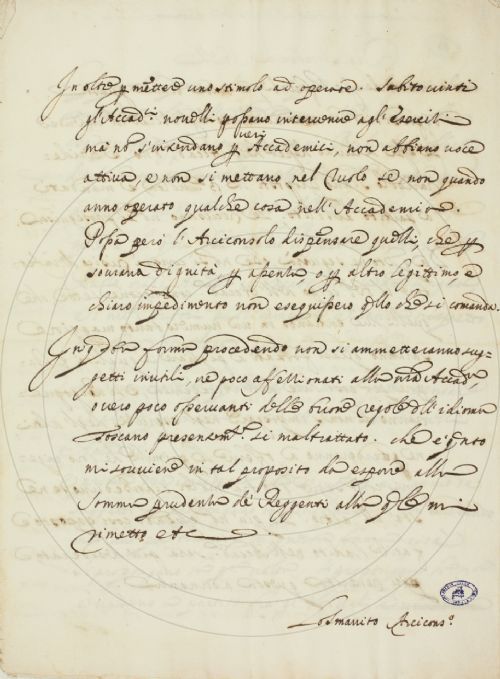 In oltre p mettere uno stimolo ad operare. Subito vinti
gl'Accad:ci novelli possano intervenire agl'esercitii
ma nō s'intendano p veri Accademici, non abbiano voce
attiva, e non si mettano nel Ruolo se non quando
anno operato qualche cosa nell'Accademia.
Possa però l'Arciconsolo dispensare quelli, che p
sovrana dignità, p assenza, o p altro legittimo, e
chiaro impedimento non eseguissero qllo che si comanda.
In qsta forma procedendo non si ammetteranno sug-
getti inutili, ne poco affezzionati alla nra Accad:a
overo poco osservanti delle buone regole dll'idioma
Toscano presentem:te si maltrattato. che è qnto
mi sovviene in tal proposito da esporre alla
somma prudenza de' Reggenti alla qle mi
rimetto etc
Lo Smarrito Arcicons:o